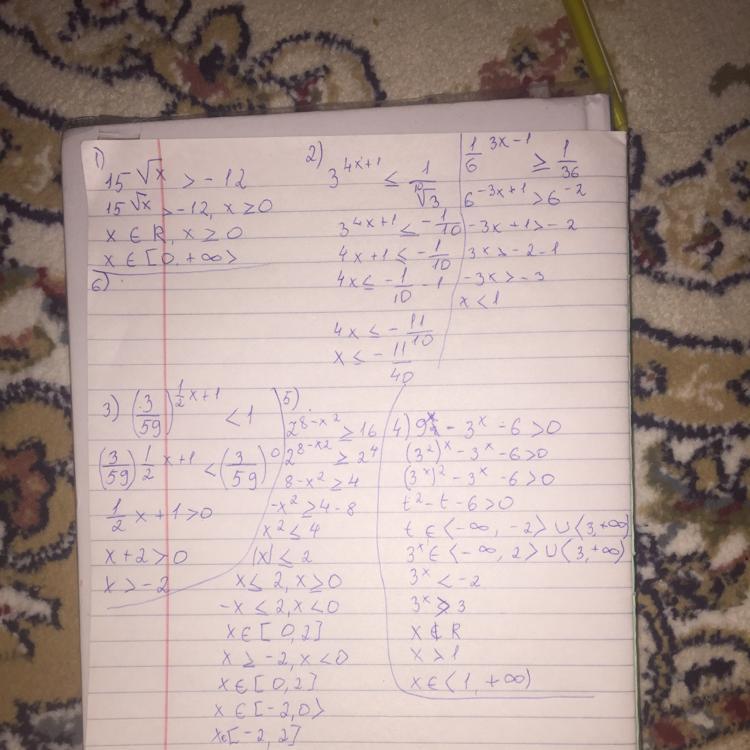 1)
15^√x > -12
15^√x > -12, x ≥ 0
x ∈ R, x ≥ 0
x ∈ [0, +∞>
6)
2)
3^(4x+1) ≤ 1/¹⁰√3
3^(4x+1) ≤ -1/10
4x+1 ≤ -1/10
4x ≤ -1/10 - 1
4x ≤ -11/10
x ≤ -11/40
1/6^(3x-1) ≥ 1/36
6^(-3x+1) > 6^(-2)
-3x+1 > -2
3x > -2-1
-3x > -3
x < 1
3) (3/59)^(1/2 x+1) < 1
(3/59)^(1/2 x+1) < (3/59)^0
1/2 x+1 > 0
x+2 > 0
x > -2
5)
2^(8-x²) ≥ 16
2^(8-x2) ≥ 2^4
8-x² ≥ 4
-x² ≥ 4-8
x² ≤ 4
|x| ≤ 2
x ≤ 2, x ≥ 0
-x ≤ 2, x < 0
x ∈ [0, 2]
x ≥ -2, x < 0
x ∈ [0, 2]
x ∈ [-2, 0>
x ∈ [-2, 2]
4) 9^x - 3^x - 6 > 0
(3²)^x - 3^x - 6 > 0
(3^x)² - 3^x - 6 > 0
t² - t - 6 > 0
t ∈ <-∞, -2> ∪ <3, +∞)
3^x ∈ <-∞, 2> ∪ <3, +∞)
3^x < -2
3^x > 3
x ∉ R
x > 1
x ∈ <1, +∞)